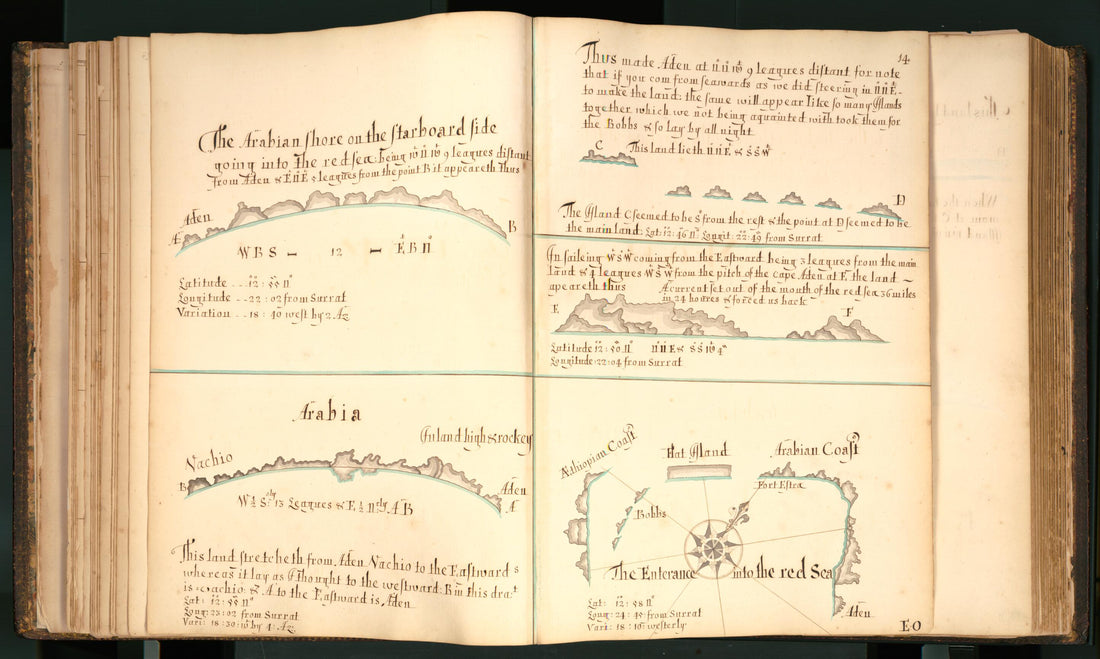 The Arabian shore on the starboard side
going into the red sea being
leagues distant
from Aden & leagues from the point B it appeareth thus
Aden
Æ
B
W B S — 12 — E B N
Latitude - - 12 : 55 N
Longitude - - 22 : 02 from Surrat
Variation - - 18 : 40 west by 2 Az
Arabia
Inland high & rockey
Nachio
B
Aden
Æ
13 Leagues & E
This land stretcheth from Aden Nachio to the Eastward s
whereas it lay as I thought to the westward: B in this dra:t
is Nachio & A to the Eastward is Aden
Lat: 12 : 55 N
Long: 23 : 02 from Surrat
Vari: 18 : 30 by 4 : Az
14
Thus made Aden at 9 leagues distant for note
that if you com from seawards as we did steering in NNE
to make the land: the same will appear like so many Islands
together which we not being aquainted with took them for
the Bobbs & so lay by all night
C
This land lieth NNE & SSW
D
The Island C seemed to be S from the rest & the point at D seemed to be
the main land: Lat: 12 : 46 N Longit: 22 : 49 from Surrat
In saileing WSW coming from the Eastward being 3 leagues from the main
land & 4 leagues WSW from the pitch of the cape Aden at F the land
apeareth thus
A current set out of the mouth of the red sea 36 miles
in 24 houres & forced us back
E
F
Latitude 12 : 50 N NNE & SSW
Longitude: 22 : 04 from Surrat
Æthiopian Coast
Flat Island
Arabian Coast
Fort Estra
Bobbs
The Enterance into the red Sea
Lat: 12 : 58 N
Long: 24 : 45 from Surrat
Vari: 18 : 10 westerly
Aden
EO